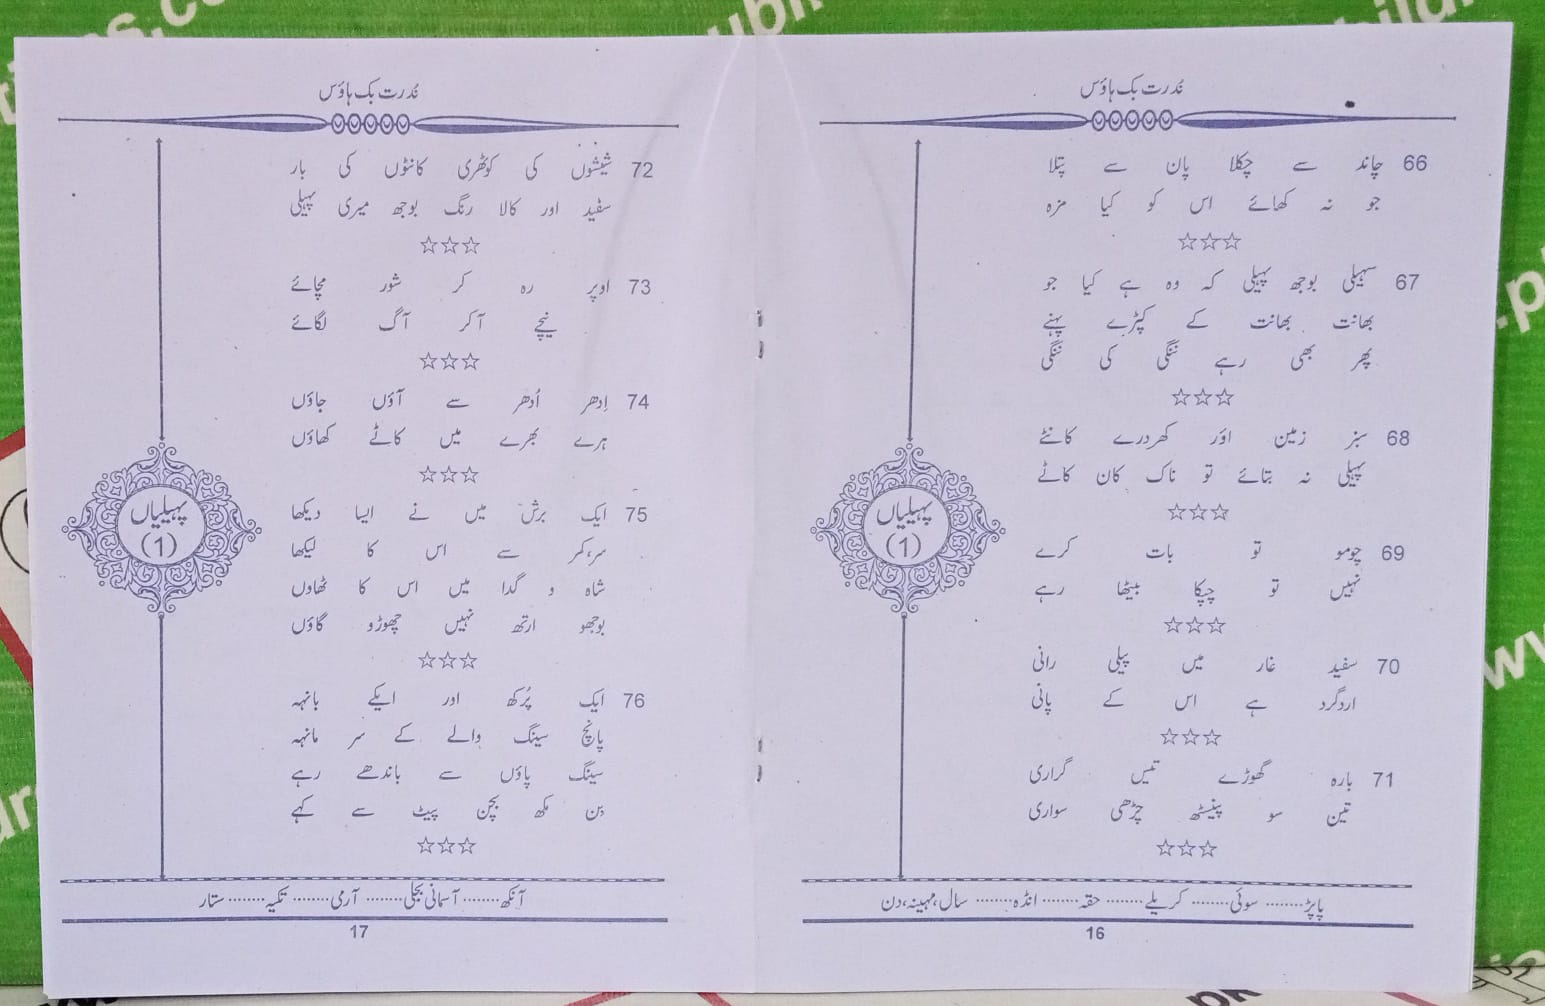 نُدرت بک ہاؤس
66 چاند سے چکلا پان سے پتلا
جو نہ کھائے اس کو کیا مزہ
☆☆☆
67 سہیلی بوجھ پہیلی کہ وہ ہے کیا جو
بھانت بھانت کے کپڑے پہنے
پھر بھی رہے ننگی کی ننگی
☆☆☆
68 سبز زمین اؤر کھردرے کانٹے
پہیلی نہ بتائے تو ناک کان کاٹے
☆☆☆
69 چومو تو بات کرے
نہیں تو چپکا بیٹھا رہے
☆☆☆
70 سفید غار میں پیلی رانی
اردگرد ہے اس کے پانی
☆☆☆
71 بارہ گھوڑے تیس گراری
تین سو پینسٹھ چڑھی سواری
☆☆☆
پہیلیاں
(1)
پاپڑ........ سوئی........ کریلے........ حقہ........ انڈہ........ سال،مہینہ،دن
16
نُدرت بک ہاؤس
72 شیشوں کی کوٹھری کانٹوں کی بار
سفید اور کالا رنگ بوجھ میری پہیلی
☆☆☆
73 اوپر رہ کر شور مچائے
نیچے آکر آگ لگائے
☆☆☆
74 اِدھر اُدھر سے آؤں جاؤں
ہرے بھرے میں کاٹے کھاؤں
☆☆☆
75 ایک برش میں نے ایسا دیکھا
سر،کمر سے اس کا لیکھا
شاہ و گدا میں اس کا ٹھاوں
بوجھو ارتھ نہیں چھوڑو گاؤں
☆☆☆
76 ایک پُرکھ اور ایکے بانہہ
پانچ سینگ والے کے سر مانہہ
سینگ پاؤں سے باندھے رہے
دن مکھ بچن پیٹ سے کہے
☆☆☆
پہیلیاں
(1)
آنکھ........ آسمانی بجلی........ آرمی........ تکیہ........ ستار
17